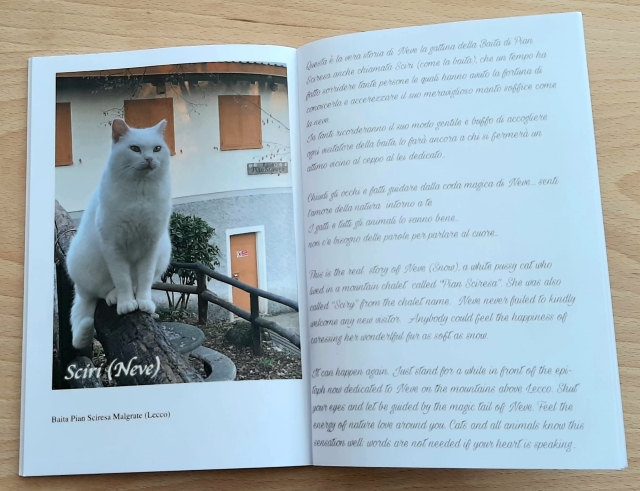 BAITA
PIAN SCIRESA
Sciri (Neve)
Baita Pian Sciresa Malgrate (Lecco)
Questa è la vera storia di Neve la gattina della Baita di Pian
Sciresa anche chiamata Sciri (come la baita), che un tempo ha
fatto sorridere tante persone le quali hanno avuto la fortuna di
conoscerla e accarezzare il suo meraviglioso manto soffice come
la neve.
In tanti ricorderanno il suo modo gentile e buffo di accogliere
ogni visitatore della baita, lo farà ancora a chi si fermerà un
attimo vicino al ceppo al lei dedicato.
Chiudi gli occhi e fatti guidare dalla coda magica di Neve... senti
l'amore della natura intorno a te
I gatti e tutti gli animali lo sanno bene..
non c'è bisogno delle parole per parlare al cuore...
This is the real story of Neve (Snow), a white pussy cat who
lived in a mountain chalet called "Pian Sciresa". She was also
called "Sciry" from the chalet name. Neve never failed to kindly
welcome any new visitor. Anybody could feel the happiness of
caressing her wonderful fur as soft as snow.
It can happen again. Just stand for a while in front of the epi-
taph now dedicated to Neve on the mountains above Lecco. Shut
your eyes and let be guided by the magic tail of Neve. Feel the
energy of nature love around you. Cats and all animals know this
sensation well, words are not needed if your heart is speaking.